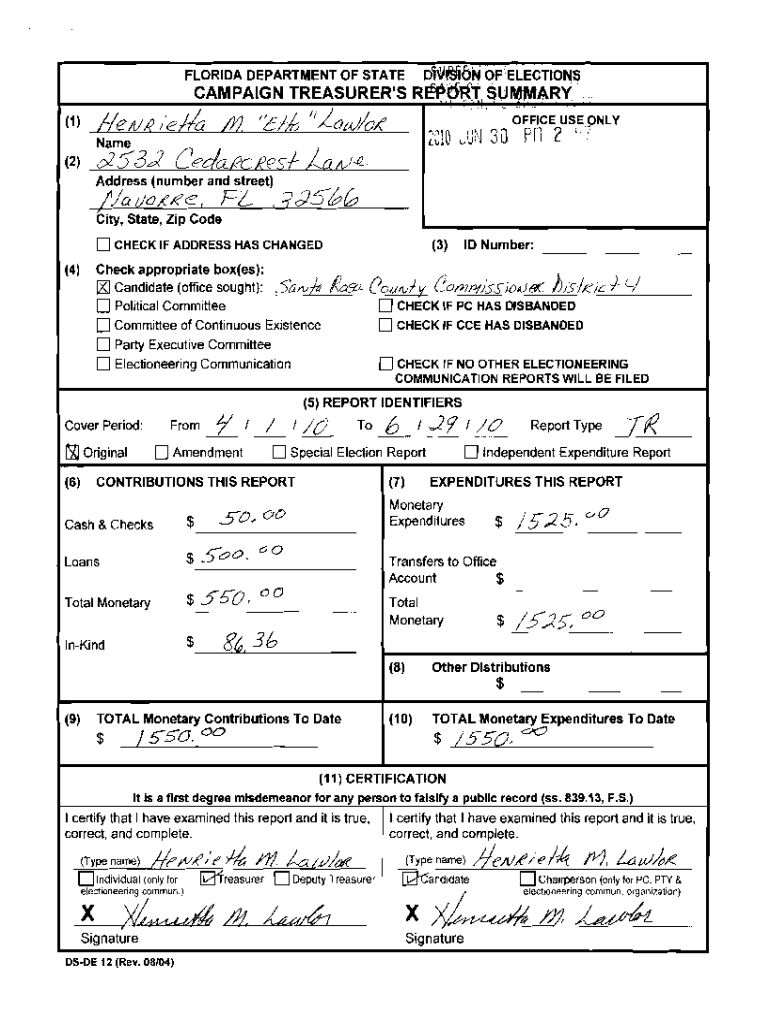 FLORIDA DEPARTMENT OF STATE DIVISION OF ELECTIONS
CAMPAIGN TREASURER'S REPORT SUMMARY
(1) Henrietta M. "Etta" Lawlor
Name
OFFICE USE ONLY
2010 JUN 30 PM 2
(2) 2532 Cedarcrest Lane
Address (number and street)
Navarre, FL 32566
City, State, Zip Code
CHECK IF ADDRESS HAS CHANGED (3) ID Number:
(4) Check appropriate box(es):
Candidate (office sought): Santa Rosa County Commissioner District 4
Political Committee CHECK IF PC HAS DISBANDED
Committee of Continuous Existence CHECK IF CCE HAS DISBANDED
Party Executive Committee
Electioneering Communication CHECK IF NO OTHER ELECTIONEERING
COMMUNICATION REPORTS WILL BE FILED
(5) REPORT IDENTIFIERS
Cover Period: From 4 / 1 / 10 To 6 / 29 / 10 Report Type TR
Original Amendment Special Election Report Independent Expenditure Report
(6) CONTRIBUTIONS THIS REPORT
Cash & Checks $ 50.00
Loans $ 500.00
Total Monetary $ 550.00
In-Kind $ 86.36
(7) EXPENDITURES THIS REPORT
Monetary
Expenditures $ 1525.00
Transfers to Office
Account $
Total
Monetary $ 1525.00
(8) Other Distributions
$
(9) TOTAL Monetary Contributions To Date
$ 1550.00
(10) TOTAL Monetary Expenditures To Date
$ 1550.00
(11) CERTIFICATION
It is a first degree misdemeanor for any person to falsify a public record (ss. 839.13, F.S.)
I certify that I have examined this report and it is true,
correct, and complete.
(Type name) Henrietta M. Lawlor
Individual (only for Treasurer Deputy Treasurer
electioneering commun.)
X Henrietta M. Lawlor
Signature
I certify that I have examined this report and it is true,
correct, and complete.
(Type name) Henrietta M. Lawlor
Candidate Chairperson (only for PC, PTY &
electioneering commun. organization)
X Henrietta M. Lawlor
Signature
DS-DE 12 (Rev. 08/04)